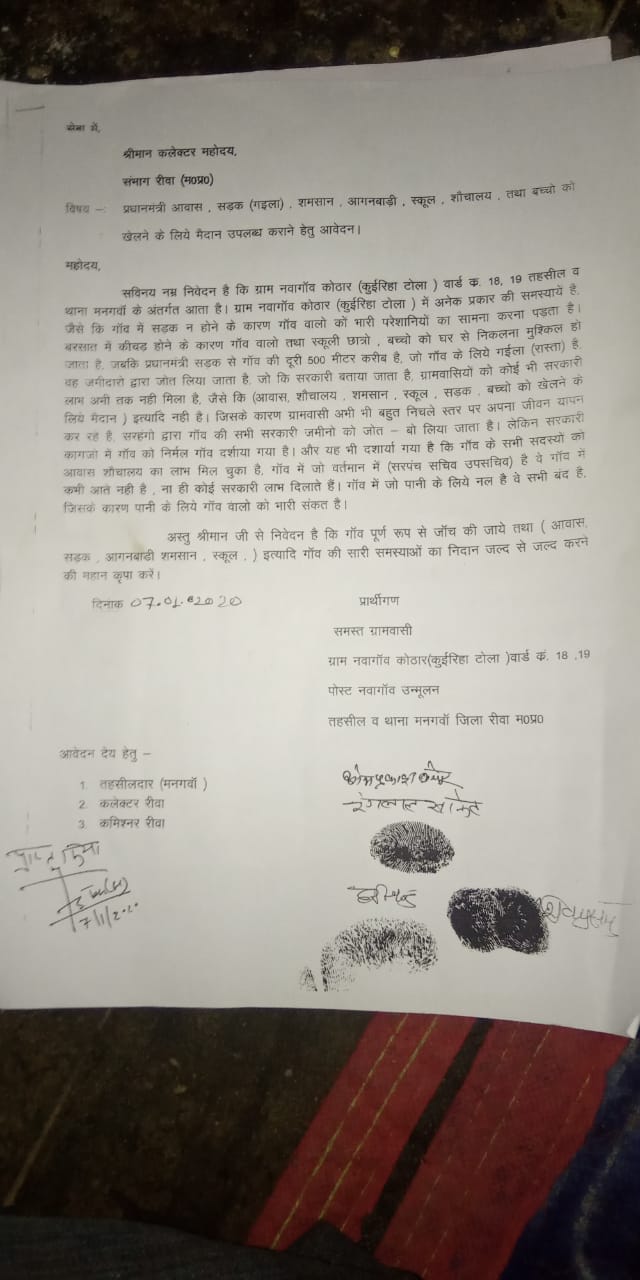 सेवा में,
श्रीमान कलेक्टर महोदय,
संभाग रीवा (म0प्र0)
विषय –: प्रधानमंत्री आवास , सड़क (गइला) , शमसान , आगनबाड़ी , स्कूल , शौचालय , तथा बच्चो को
खेलने के लिये मैदान उपलब्ध कराने हेतु आवेदन।
महोदय,
सविनय नम्र निवेदन है कि ग्राम नवागॉव कोठार (कुईरिहा टोला ) वार्ड क. 18, 19 तहसील व
थाना मनगवॉ के अंतर्गत आता है। ग्राम नवागॉव कोठार (कुईरिहा टोला ) में अनेक प्रकार की समस्यायें है,
जैसे कि गॉव में सड़क न होने के कारण गॉव वालो को भारी परेशानियों का सामना करना पड़ता है।
बरसात में कीचड़ होने के कारण गॉव वालो तथा स्कूली छात्रो , बच्चो को घर से निकलना मुश्किल हो
जाता है, जबकि प्रधानमंत्री सड़क से गॉव की दूरी 500 मीटर करीब है, जो गॉव के लिये गईला (रास्ता) है,
वह जमींदारो द्वारा जोत लिया जाता है, जो कि सरकारी बताया जाता है, ग्रामवासियों को कोई भी सरकारी
लाभ अभी तक नही मिला है, जैसे कि (आवास, शौचालय , शमसान , स्कूल , सड़क , बच्चो को खेलने के
लिये मैदान ) इत्यादि नही है। जिसके कारण ग्रामवासी अभी भी बहुत निचले स्तर पर अपना जीवन यापन
कर रहे है, सरहंगो द्वारा गॉव की सभी सरकारी जमीनो को जोत – बो लिया जाता है। लेकिन सरकारी
कागजो में गॉव को निर्मल गॉव दर्शाया गया है। और यह भी दशार्या गया है कि गॉव के सभी सदस्यो को
आवास शौचालय का लाभ मिल चुका है, गॉव में जो वर्तमान में (सरपंच सचिव उपसचिव) है वे गॉव में
कभी आते नही है , ना ही कोई सरकारी लाभ दिलाते हैं। गॉव में जो पानी के लिये नल है वे सभी बंद है,
जिसके कारण पानी के लिये गॉव वालो को भारी संकत है।
अस्तु श्रीमान जी से निवेदन है कि गॉव पूर्ण रूप से जॉच की जाये तथा ( आवास,
सड़क , आगनबाडी शमसान , स्कूल , ) इत्यादि गॉव की सारी समस्याओं का निदान जल्द से जल्द करने
की महान कृपा करें।
दिनांक 07.01.2020
प्रार्थीगण
समस्त ग्रामवासी
ग्राम नवागॉव कोठार(कुईरिहा टोला )वार्ड कं. 18 ,19
पोस्ट नवागॉव उन्मूलन
तहसील व थाना मनगवॉ जिला रीवा म0प्र0
आवेदन देय हेतु –
1. तहसीलदार (मनगवॉ )
2. कलेक्टर रीवा
3. कमिश्नर रीवा
प्राप्त किया
7/1/2020
रंगलाल साकेत